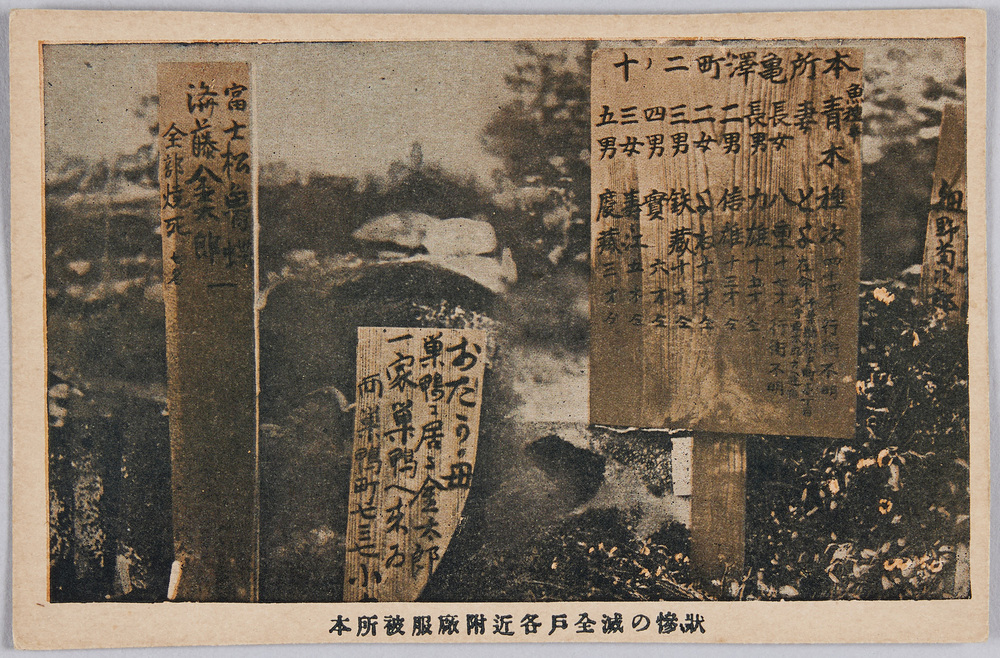 本所亀澤町二ノ十
青木種次 四十四才 行衛不明
妻 とよ 在命
長女 八重 十七才 行衛不明
長男 力雄 十五才 仝
二男 信雄 十三才 仝
二女 十一才 仝
三男 鉄藏 十才 仝
四男 實 六才 仝
三女 喜江 五才 仝
五男 慶藏 三才 仝
巣鴨ニ居る金太郎
一家巣鴨へ来る
巣鴨町
富士松
齋藤金太郎
全部焼死
野菊次郎
本所被服廠附近各戸全滅の慘狀